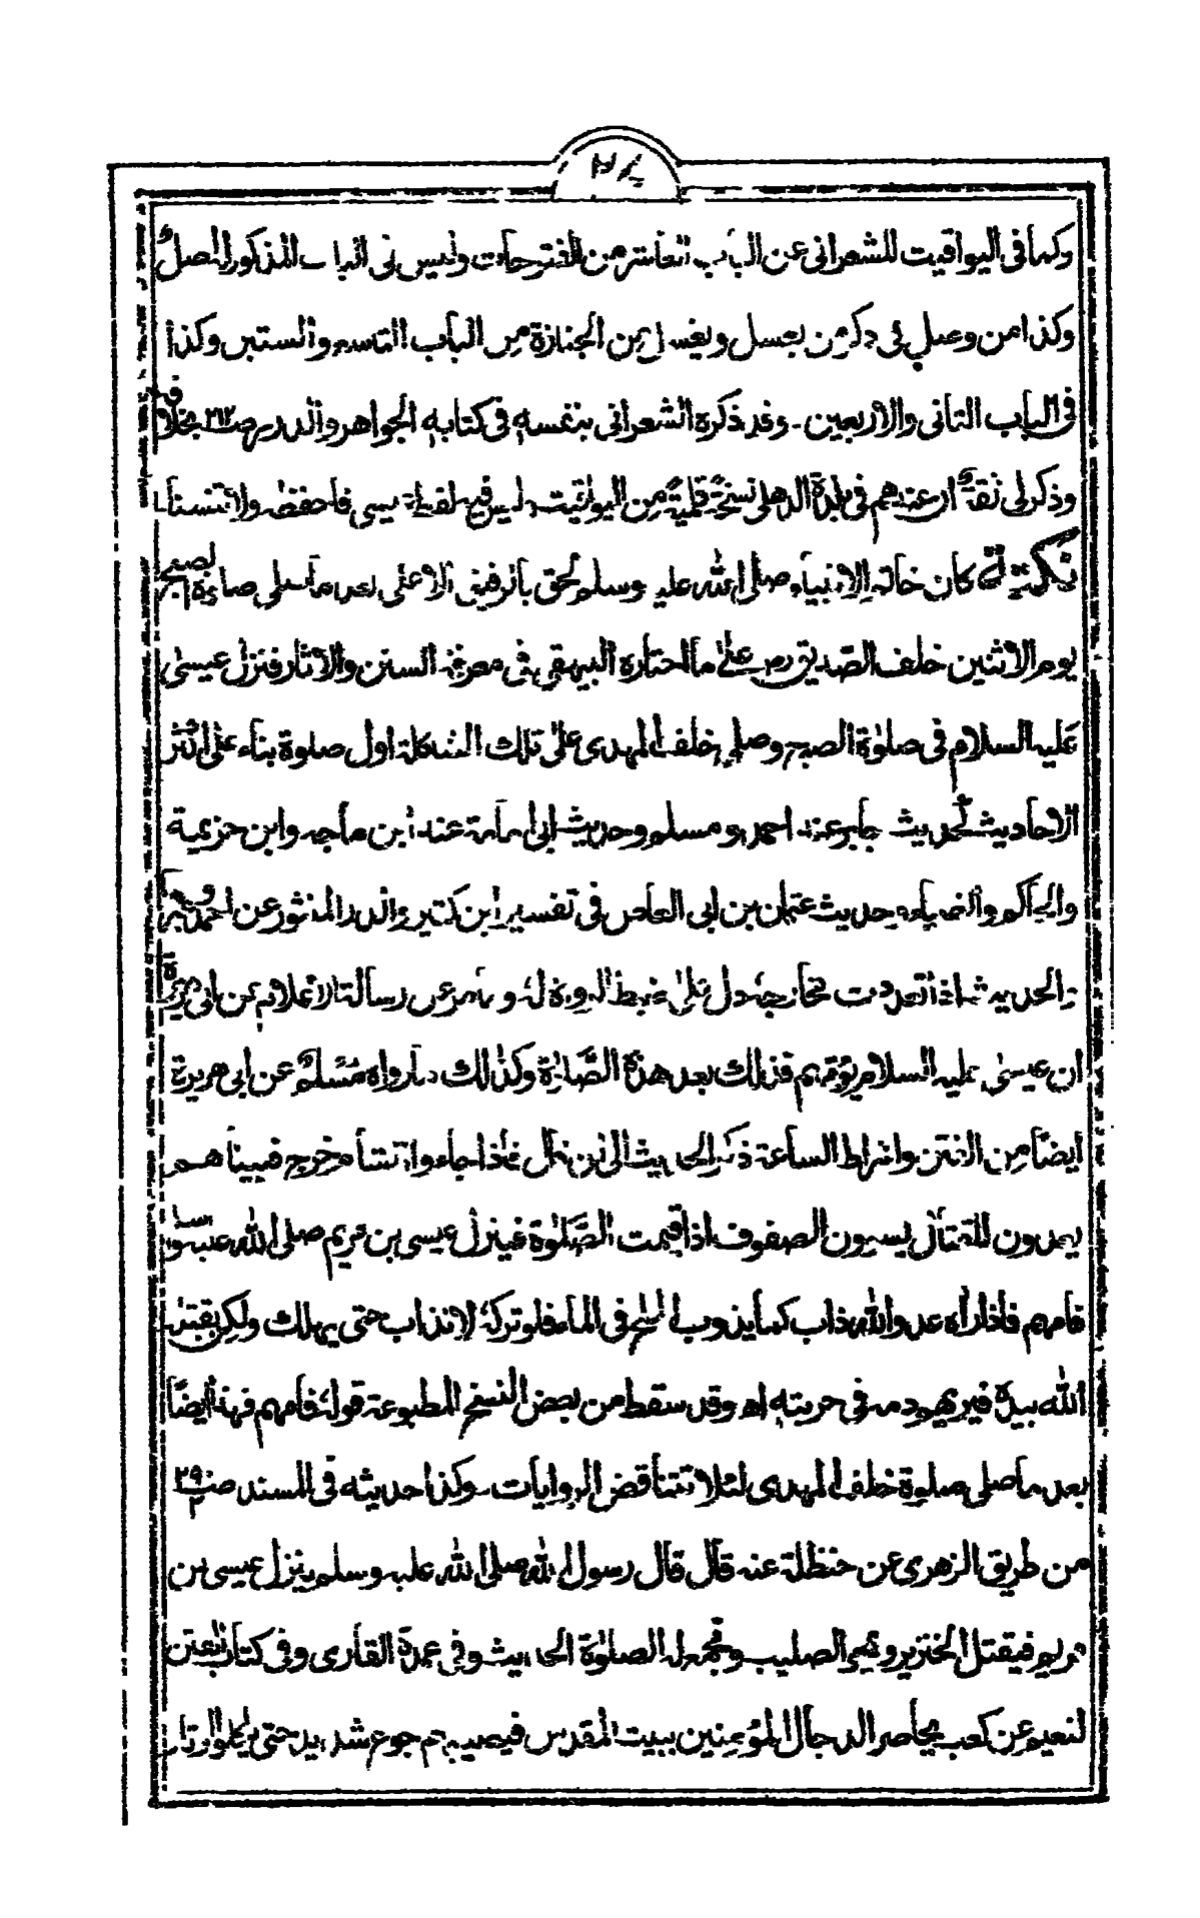 وكما فى اليواقيت للشعرانى عن الباب العاشر من الفتوحات وليس فى الباب المذكور
وكذا من وصل فى ذكر من يغسل ويغسل من الجنازة من الباب التاسع والستين وكذا
فى الباب الثانى والاربعين - وقد ذكره الشعرانى بنفسه فى كتابه الجواهر والدرر
وذكر لى ثقة ان عندهم فى بلدة الدهلى نسخة قلمية من اليواقيت وليس فيه لفظة عيسى فاحفظه ولا تنسنا
كان خاتم الانبياء صلى الله عليه وسلم لحق بالرفيق الاعلى بعد ما صلى صلوة الصبح
يوم الاثنين خلف الصديق رض على ما اختاره البيهقى فى معرفة السنن والاثار فنزل عيسى
عليه السلام فى صلوة الصبح وصلى خلف المهدى على تلك الشاكلة اول صلوة بناء على اكثر
الاحاديث لحديث جابر عند احمد ومسلم وحديث ابى امامة عند ابن ماجه وابن خزيمة
والحاكم والضياء وحديث عثمان بن ابى العاص فى تفسير ابن كثير والدر المنثور عن احمد
والحديث اذا تعددت مخارجه دل على ضبط الرواة له وما مر عن رسالة الاعلام عن ابى هريرة
ان عيسى عليه السلام يؤمهم فذلك بعد هذه الصلوة وكذلك ما رواه مسلم عن ابى هريرة
ايضا من الفتن واشراط الساعة ذكر الحديث الى ان قال فاذا جاءوا الشام خرج فبينا هم
يعدون للقتال يسوون الصفوف اذا قيمت الصلوة فينزل عيسى بن مريم صلى الله عليه وسلم
فامهم فاذا راه عدو الله ذاب كما يذوب الملح فى الماء فلو تركه لانذاب حتى يهلك ولكن يقتله
الله بيده فيريهم دمه فى حربته اھ وقد سقط من بعض النسخ المطبوعة قوله فامهم فهذا ايضا
بعد ما صلى صلوة خلف المهدى لئلا تتناقض الروايات - وكذا حديثه فى المسند
من طريق الزهرى عن حنظلة عنه قال قال رسول الله صلى الله عليه وسلم ينزل عيسى بن
مريم فيقتل الخنزير ويمحى الصليب وتجمع له الصلوة الحديث وفى عمدة القارى وفى كتاب الفتن
لنعيم عن كعب يحاصر الدجال المؤمنين ببيت المقدس فيصيبهم جوع شديد حتى ياكلوا اوتار